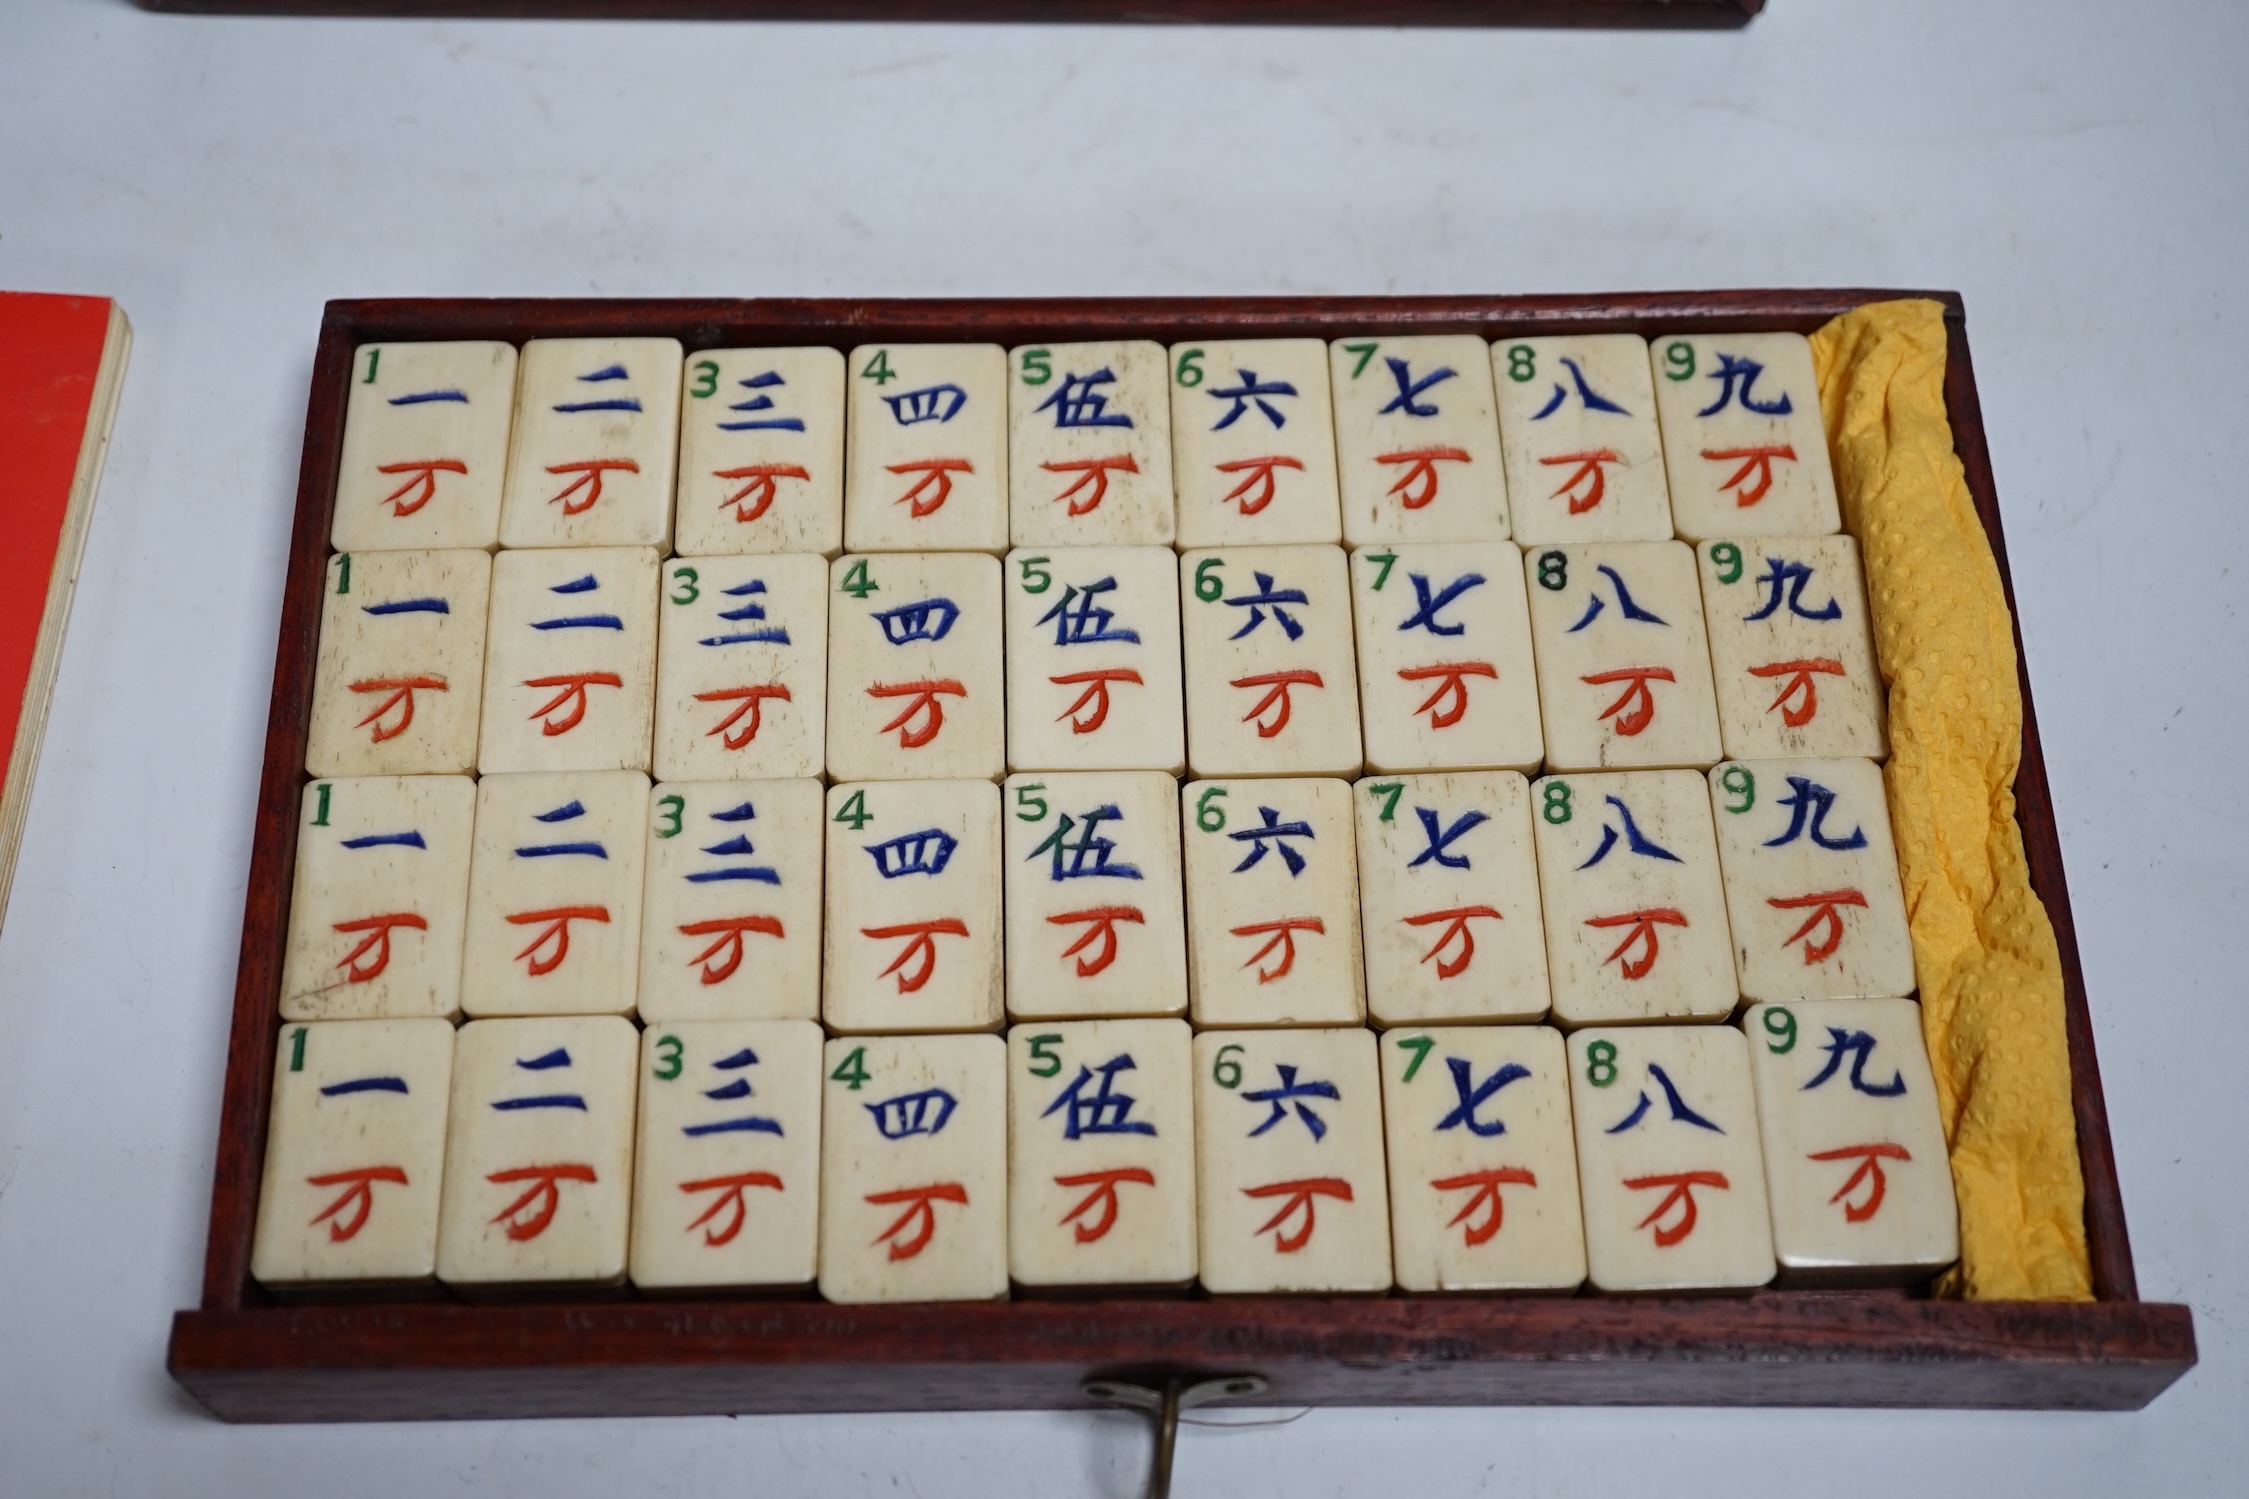 1 一万 二万 3 三万 4 四万 5 伍万 6 六万 7 七万 8 八万 9 九万
1 一万 二万 3 三万 4 四万 5 伍万 6 六万 7 七万 8 八万 9 九万
1 一万 二万 3 三万 4 四万 5 伍万 6 六万 7 七万 8 八万 9 九万
1 一万 二万 3 三万 4 四万 5 伍万 6 六万 7 七万 8 八万 9 九万